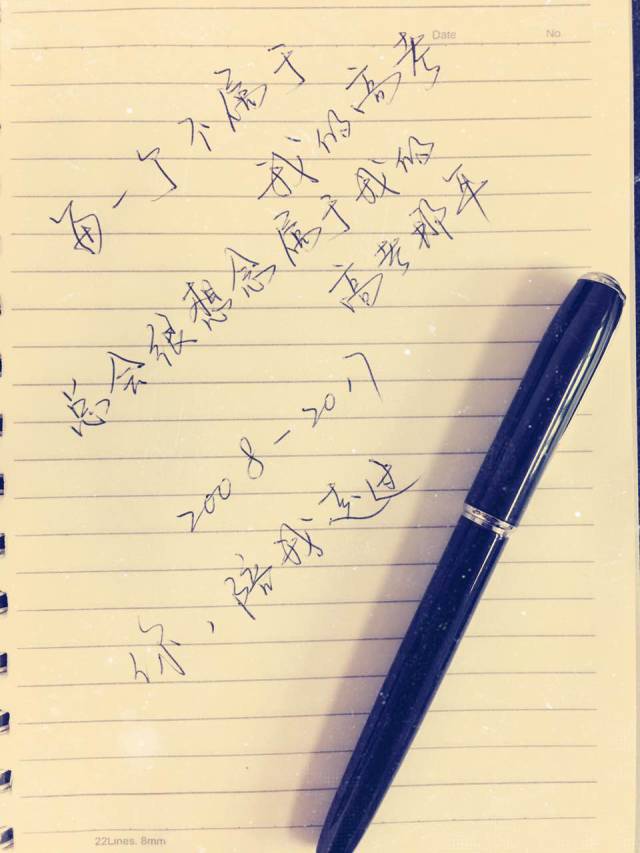 Date No.
每一个不属于
我的高考
总会很想念属于我的
高考那年
2008-2017
你,陪我走过
22Lines. 8mm